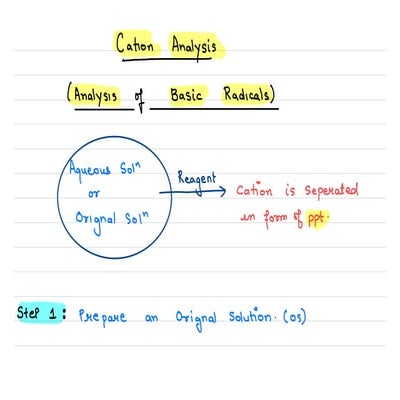 Cation Analysis
(Analysis of Basic Radicals)
Aqueous Solⁿ
or
Orignal Solⁿ
Reagent
Cation is seperated
in form of ppt.
Step 1: Prepare an Orignal Solution. (OS)